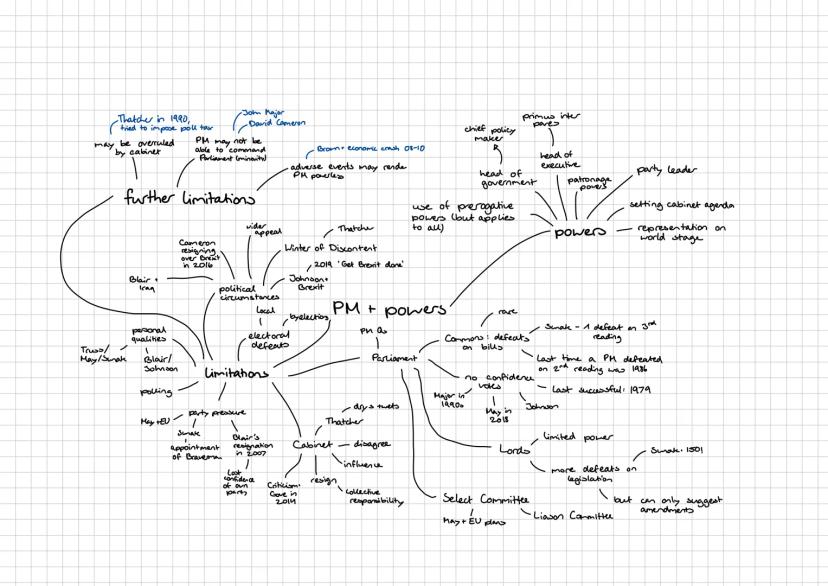 Thatcher in 1990,
tried to impose poll tax
John Major
David Cameron
may be overruled
by cabinet
PM may not be
able to command
Parliament (minority)
Brown + economic crash 08-10
adverse events may render
PM powerless
further limitations
primus inter
pares
chief policy
maker
head of
executive
head of
government
patronage
powers
party leader
use of prerogative
powers (but applies
to all)
setting cabinet agenda
powers
representation on
world stage
wider
appeal
Thatcher
Cameron
resigning
over Brexit
in 2016
Winter of Discontent
2019 'Get Brexit done'
Blair +
Iraq
Johnson +
Brexit
political
circumstances
PM + powers
local
byelections
electoral
defeats
PM Qs
rare
personal
qualities
Truss/
May/Sunak
Blair/
Johnson
Commons: defeats
on bills
Sunak - 1 defeat on 3rd
reading
Last time a PM defeated
on 2nd reading was 1986
Parliament
limitations
no confidence
votes
Last successful: 1979
Major in
1990s
May in
2018
Johnson
polling
party pressure
May + EU
Sunak
appointment
of Braverman
Blair's
resignation
in 2007
Lost
confidence
of own
party
drys + wets
Thatcher
Cabinet
disagree
influence
resign
collective
responsibility
Criticism:
Gove in
2014
limited power
Lords
Sunak: 1501
more defeats on
legislation
but can only suggest
amendments
Select Committee
May + EU plans
Liason Committee